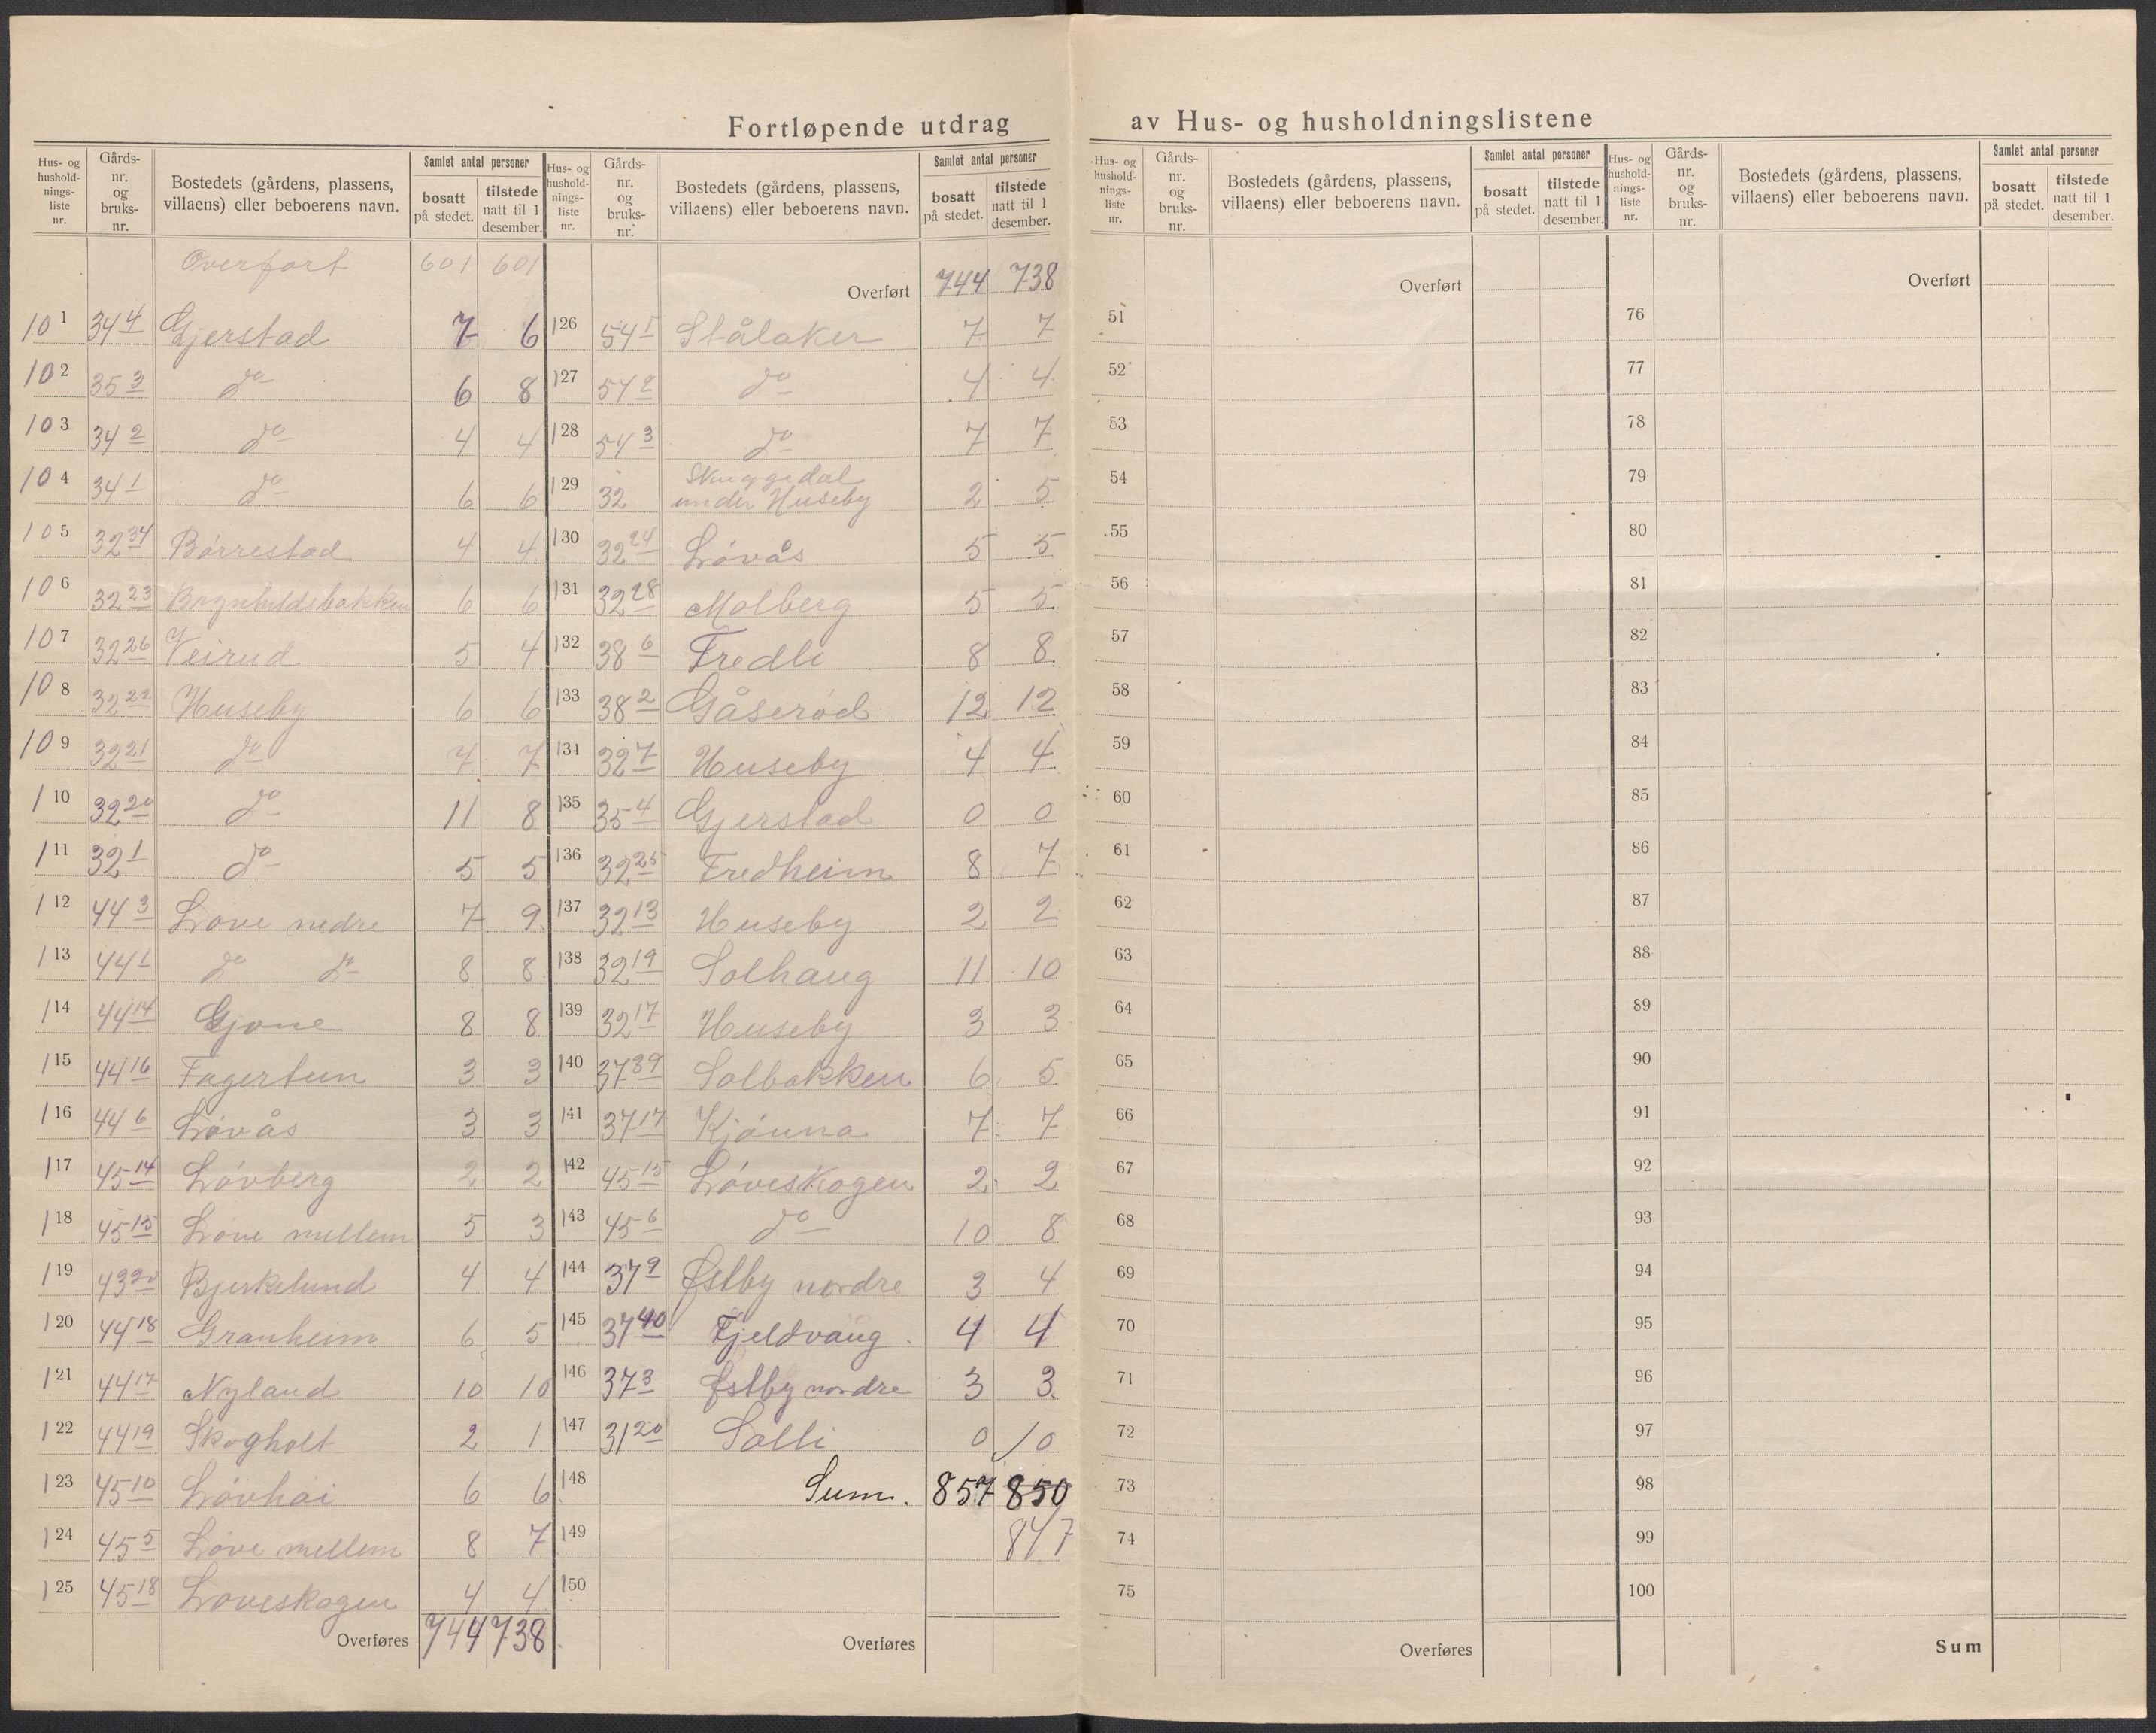 Fortløpende utdrag av Hus- og husholdningslistene
Hus- og hushold-nings-liste nr. | Gårds-nr. og bruks-nr. | Bostedets (gårdens, plassens, villaens) eller beboerens navn. | Samlet antal personer | bosatt på stedet. | tilstede natt til 1 desember.
Overført 601 601
101 34 4 Gjerstad 7 6
102 35 3 do 6 8
103 34 2 do 4 4
104 34 1 do 6 6
105 32 34 Børrestad 4 4
106 32 23 6 6
107 32 26 Veirud 5 4
108 32 22 Huseby 6 6
109 32 21 do 7 7
110 32 20 do 11 8
111 32 1 do 5 5
112 44 3 Løve nedre 7 9
113 44 1 do do 8 8
114 44 14 Gjone 8 8
115 44 16 Fagertun 3 3
116 44 6 Løvås 3 3
117 45 14 Løvberg 2 2
118 45 15 Løve mellem 5 3
119 43 20 Bjerkelund 4 4
120 44 18 Granheim 6 5
121 44 17 Nyland 10 10
122 44 19 Skogholt 2 1
123 45 10 Løvhøi 6 6
124 45 5 Løve mellem 8 7
125 45 18 Løveskogen 4 4
Overføres 744 738
Hus- og hushold-nings-liste nr. | Gårds-nr. og bruks-nr. | Bostedets (gårdens, plassens, villaens) eller beboerens navn. | Samlet antal personer | bosatt på stedet. | tilstede natt til 1 desember.
Overført 744 738
126 54 1 Stålaker 7 7
127 54 2 do 4 4
128 54 3 do 7 7
129 32 Skuggedal
under Huseby 2 5
130 32 24 Løvås 5 5
131 32 28 Molberg 5 5
132 38 6 Fredli 8 8
133 38 2 Gåserød 12 12
134 32 7 Huseby 4 4
135 35 4 Gjerstad 0 0
136 32 25 Fredheim 8 7
137 32 13 Huseby 2 2
138 32 19 Solhaug 11 10
139 32 17 Huseby 3 3
140 37 39 Solbakken 6 5
141 37 17 Kjønna 7 7
142 45 15 Løveskogen 2 2
143 45 6 do 10 8
144 37 9 Østby nordre 3 4
145 37 40 Fjeldvang 4 4
146 37 3 Østby nordre 3 3
147 31 20 Solli 0 0
148 Sum. 857 850
149 847
150
Overføres
Hus- og hushold-nings-liste nr. | Gårds-nr. og bruks-nr. | Bostedets (gårdens, plassens, villaens) eller beboerens navn. | Samlet antal personer | bosatt på stedet. | tilstede natt til 1 desember.
Overført
51
52
53
54
55
56
57
58
59
60
61
62
63
64
65
66
67
68
69
70
71
72
73
74
75
Overføres
Hus- og hushold-nings-liste nr. | Gårds-nr. og bruks-nr. | Bostedets (gårdens, plassens, villaens) eller beboerens navn. | Samlet antal personer | bosatt på stedet. | tilstede natt til 1 desember.
Overført
76
77
78
79
80
81
82
83
84
85
86
87
88
89
90
91
92
93
94
95
96
97
98
99
100
Sum